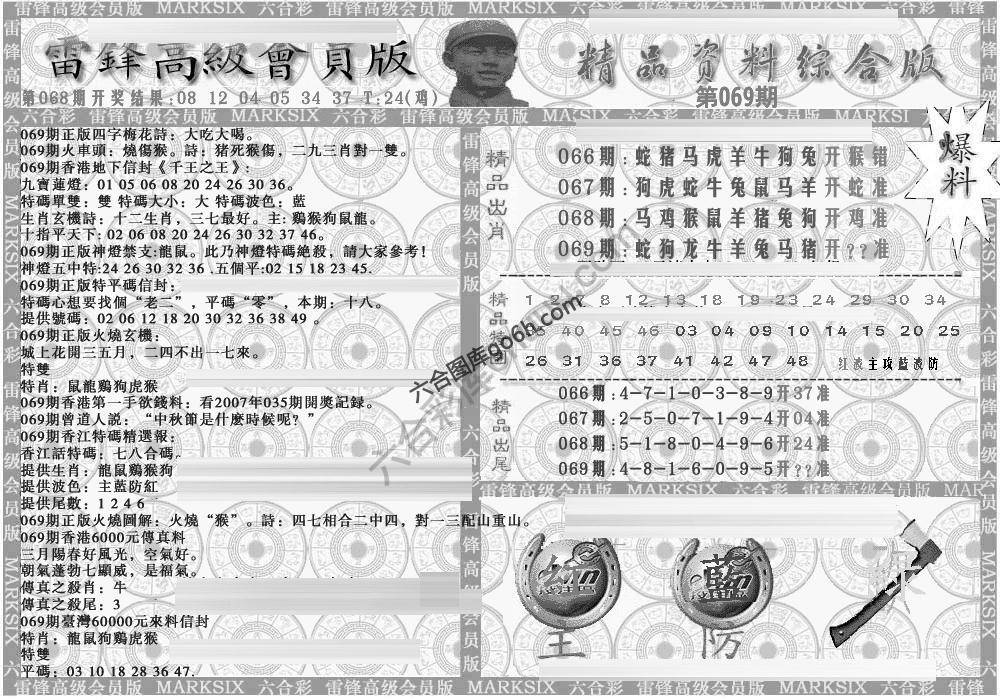 雷锋高级会员版 MARKSIX 六合彩 雷锋高级会员版 MARKSIX 六合彩 雷锋高级会员版 MARKSIX 六合彩
雷鋒高級會員版
精品资料综合版
第068期开奖结果:08 12 04 05 34 37 T:24(鸡)
第069期
爆料
069期正版四字梅花詩：大吃大喝。
069期火車頭：燒傷猴。詩：猪死猴傷，二九三肖對一雙。
069期香港地下信封《千王之王》:
九寶蓮燈：01 05 06 08 20 24 26 30 36。
特碼單雙：雙 特碼大小：大 特碼波色：藍
生肖玄機詩：十二生肖，三七最好。主: 鷄猴狗鼠龍。
十指平天下: 02 06 08 20 24 26 30 32 37 46。
069期正版神燈禁支:龍鼠。此乃神燈特碼絶殺，請大家參考!
神燈五中特:24 26 30 32 36 .五個平:02 15 18 23 45.
069期正版特平碼信封：
特碼心想要找個“老二”，平碼“零”，本期：十八。
提供號碼：02 06 12 18 20 30 32 36 38 49 。
069期正版火燒玄機：
城上花開三五月，二四不出一七來。
特雙
特肖：鼠龍鷄狗虎猴
069期香港第一手欲錢料：看2007年035期開獎記録。
069期曾道人説：“中秋節是什麼時候呢？”
069期香江特碼精選報：
香江話特碼：七八合碼。
提供生肖：龍鼠鷄猴狗
提供波色：主藍防紅
提供尾數：1 2 4 6
069期正版火燒圖解：火燒“猴”。詩：四七相合二中四，對一三配山重山。
069期香港6000元傳真料
三月陽春好風光，空氣好。
朝氣蓬勃七顯威，是福氣。
傳真之殺肖：牛
傳真之殺尾：3
069期臺灣60000元來料信封
特肖：龍鼠狗鷄虎猴
特雙
平碼：03 10 18 28 36 47.
精品出肖
066期:蛇猪马虎羊牛狗兔开猴错
067期:狗虎蛇牛兔鼠马羊开蛇准
068期:马鸡猴鼠羊猪兔狗开鸡准
069期:蛇狗龙牛羊兔马猪开??准
1 2 7 8 12 13 18 19 23 24 29 30 34
35 40 45 46 03 04 09 10 14 15 20 25
26 31 36 37 41 42 47 48 红波主攻蓝波防
精品出尾
066期:4-7-1-0-3-8-9开37准
067期:2-5-0-7-1-9-4开04准
068期:5-1-8-0-4-9-6开24准
069期:4-8-1-6-0-9-5开??准
雷锋高级会员版 MARKSIX 六合彩 雷锋高级会员版
藍
主
防
六合图库go6h.com
雷锋高级会员版 MARKSIX 六合彩 雷锋高级会员版 MARKSIX 六合彩 雷锋高级会员版 MARKSIX 六合彩